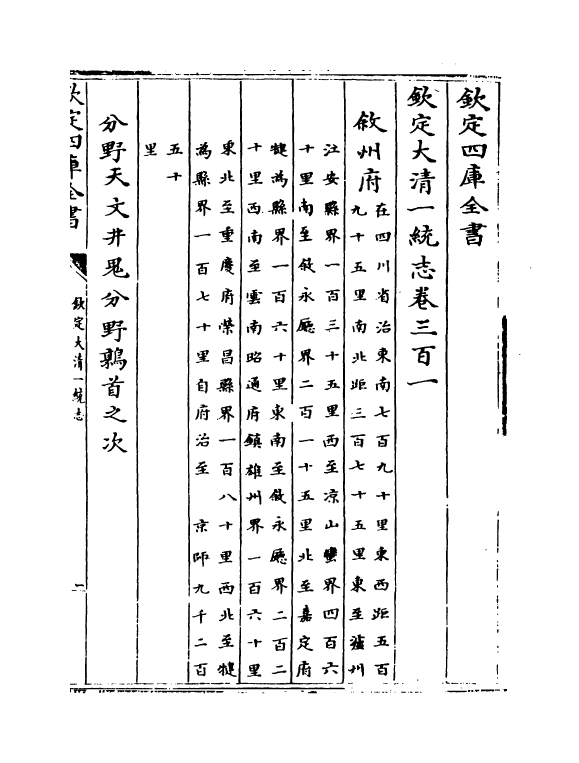 欽定四庫全書
欽定大清一統志卷三百一
敘州府
在四川省治東南七百九十里東西距五百
九十五里南北距三百七十五里東至瀘州
江安縣界一百三十五里西至凉山蠻界四百六
十里南至敘永廳界二百一十五里北至嘉定府
犍為縣界一百六十里東南至敘永廳界二百二
十里西南至雲南昭通府鎮雄州界一百六十里
東北至重慶府榮昌縣界一百八十里西北至犍
為縣界一百七十里自府治至 京師九千二百
五十
里
分野天文井鬼分野鶉首之次
欽定四庫全書
欽定大清一統志
一